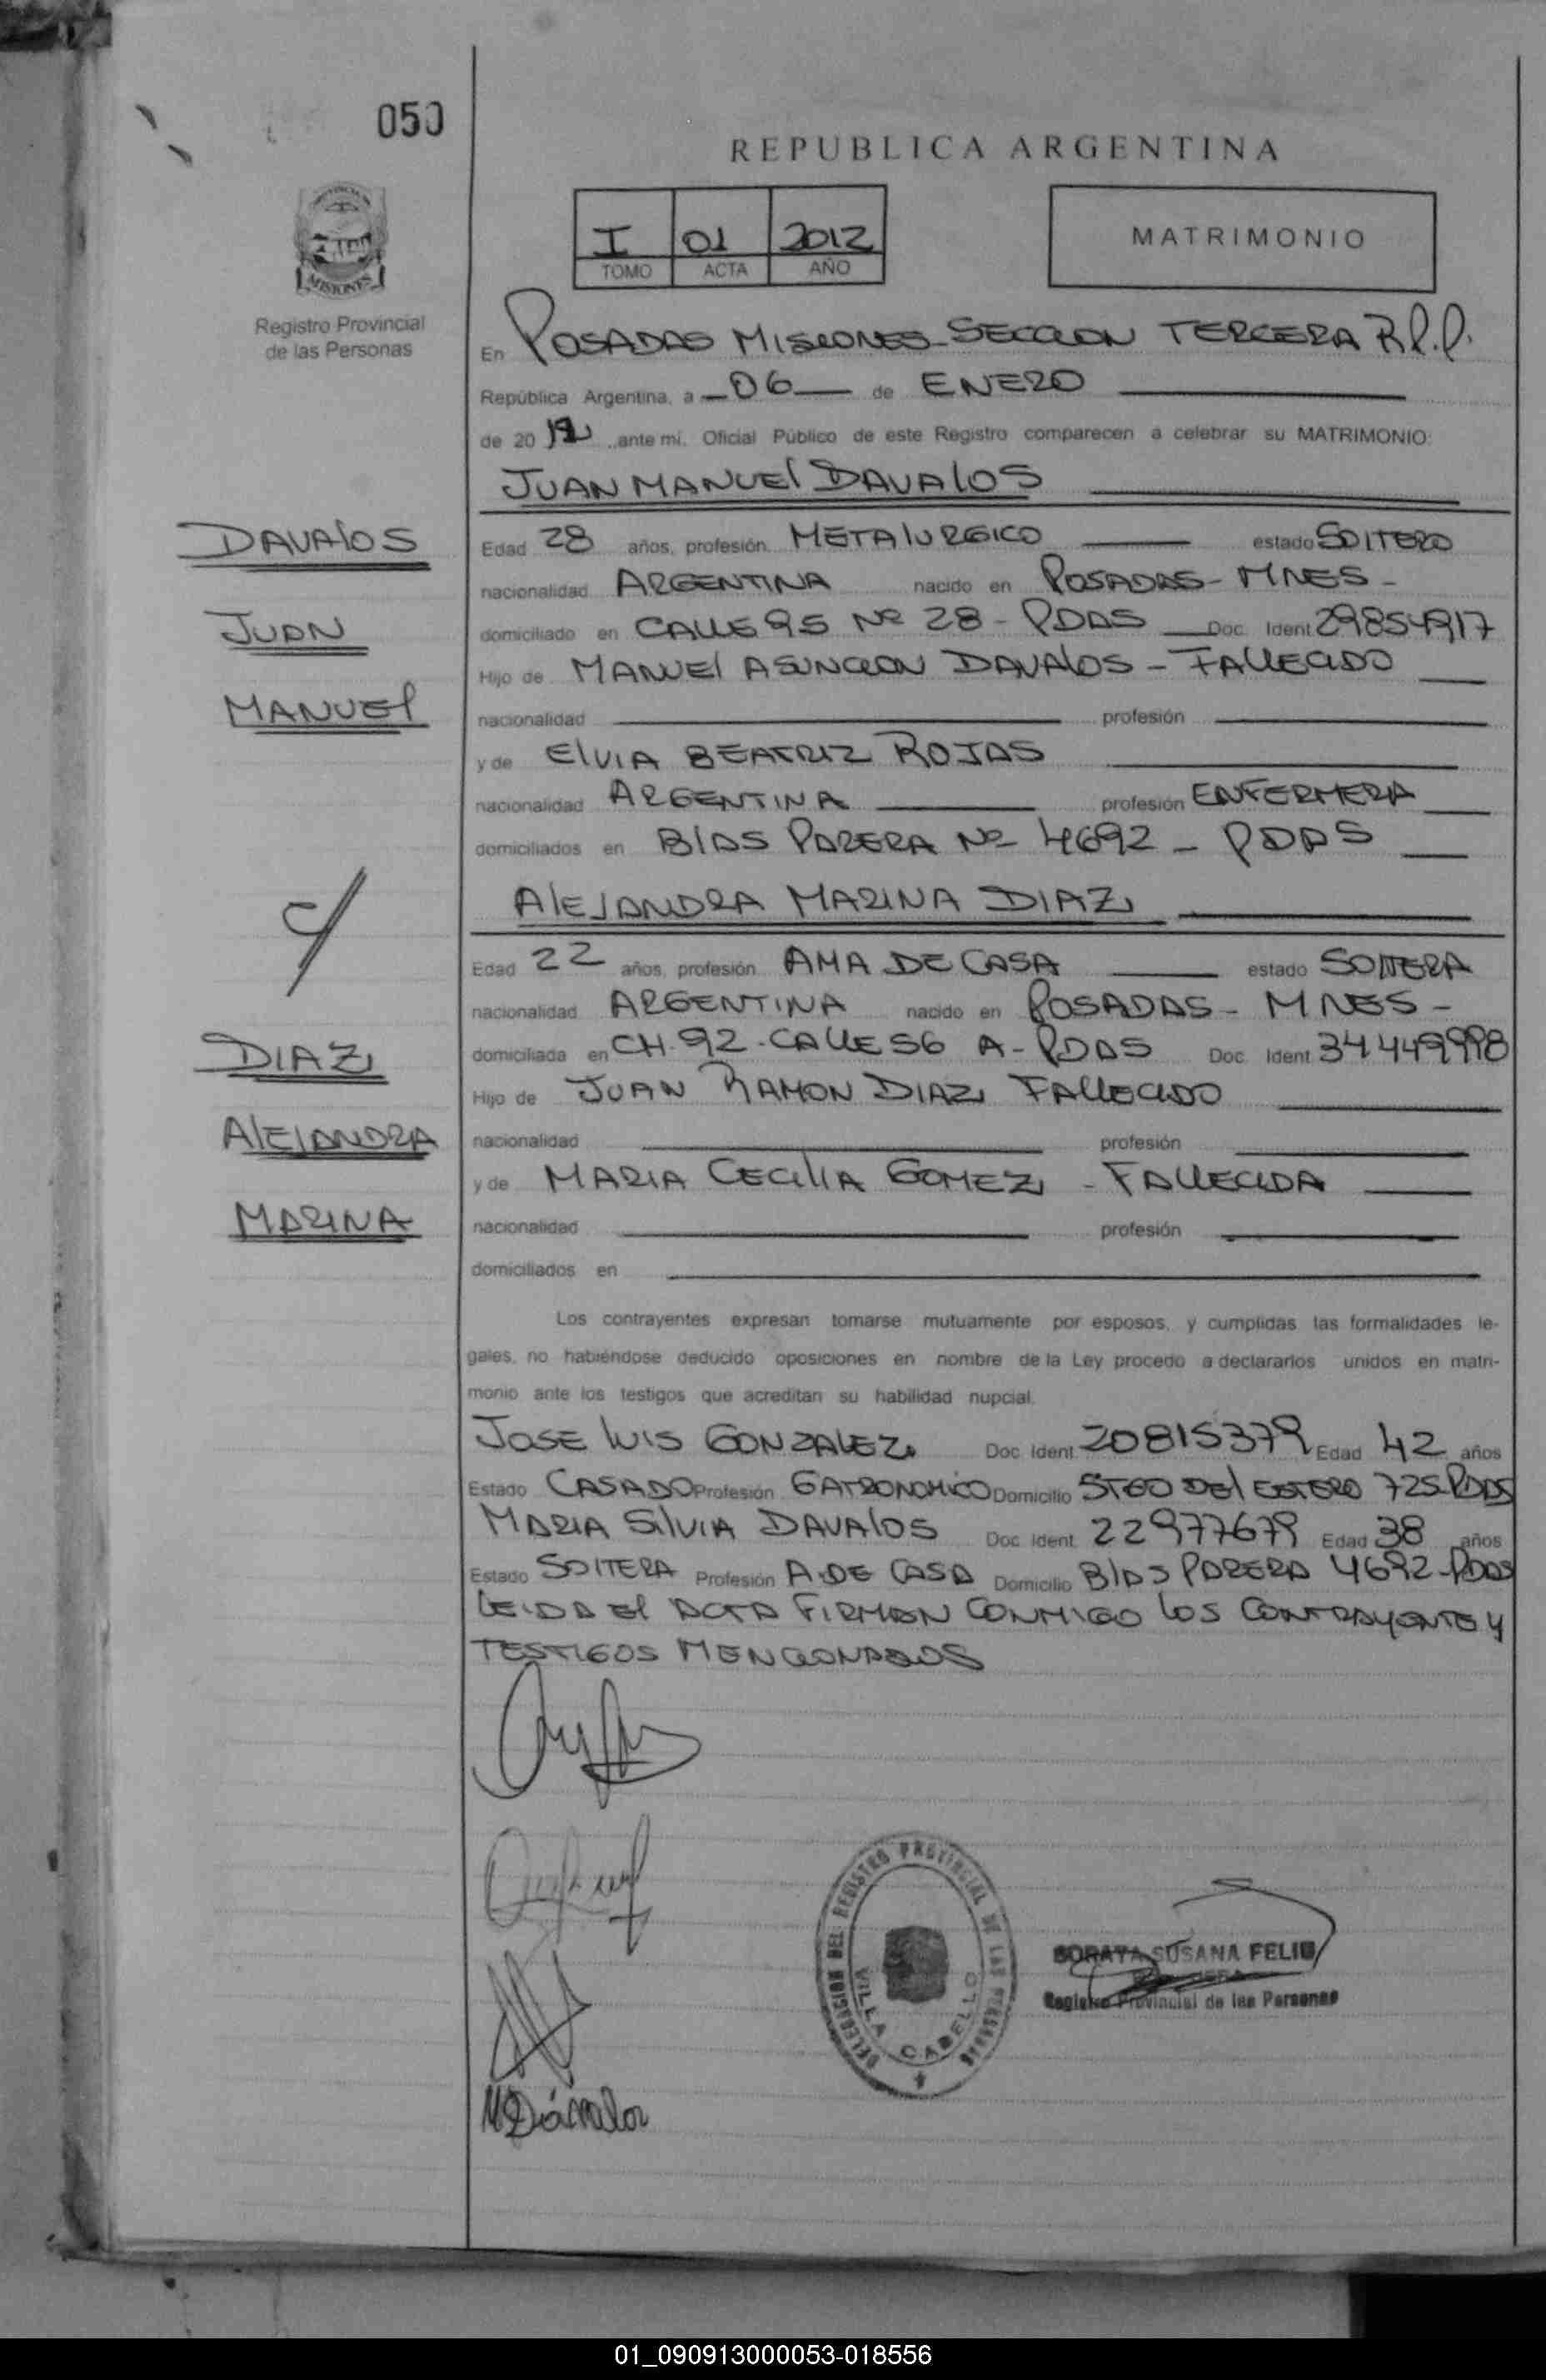 050
REPUBLICA ARGENTINA
I 01 2012
TOMO ACTA AÑO
MATRIMONIO
MISIONES
Registro Provincial
de las Personas
En POSADAS MISIONES - SECCION TERCERA R.P.P.
República Argentina, a 06 de ENERO
de 20 12 ante mí, Oficial Público de este Registro comparecen a celebrar su MATRIMONIO:
JUAN MANUEL DAVALOS
DAVALOS
JUAN
MANUEL
Edad 28 años, profesión METALURGICO estado SOLTERO
nacionalidad ARGENTINA nacido en POSADAS - MNES -
domiciliado en CALLE 95 Nº 28 - PDAS Doc. Ident 29854917
Hijo de MANUEL ASUNCION DAVALOS - FALLECIDO
nacionalidad profesión
y de ELVIA BEATRIZ ROJAS
nacionalidad ARGENTINA profesión ENFERMERA
domiciliados en BLAS PARERA Nº 4692 - PDAS
c/
ALEJANDRA MARINA DIAZ
DIAZ
ALEJANDRA
MARINA
Edad 22 años, profesión AMA DE CASA estado SOLTERA
nacionalidad ARGENTINA nacido en POSADAS - MNES -
domiciliada en CH. 92 - CALLE 56 A - PDAS Doc. Ident 34449998
Hijo de JUAN RAMON DIAZ FALLECIDO
nacionalidad profesión
y de MARIA CECILIA GOMEZ - FALLECIDA
nacionalidad profesión
domiciliados en
Los contrayentes expresan tomarse mutuamente por esposos, y cumplidas las formalidades le-
gales, no habiéndose deducido oposiciones en nombre de la Ley procedo a declararlos unidos en matri-
monio ante los testigos que acreditan su habilidad nupcial.
JOSE LUIS GONZALEZ Doc. Ident 20815379 Edad 42 años
Estado CASADO Profesión GATRONOMICO Domicilio STGO DEL ESTERO 725 - PDAS
MARIA SILVIA DAVALOS Doc. Ident 22977679 Edad 38 años
Estado SOLTERA Profesión A. DE CASA Domicilio BLAS PARERA 4692 - PDAS
LEIDA EL ACTA FIRMAN CONMIGO LOS CONTRAYENTE Y
TESTIGOS MENCIONADOS
DELEGACION DEL REGISTRO PROVINCIAL DE LAS PERSONAS
VILLA CABELLO
SORAYA SUSANA FELIU
Registro Provincial de las Personas
MSDávalos
01_090913000053-018556